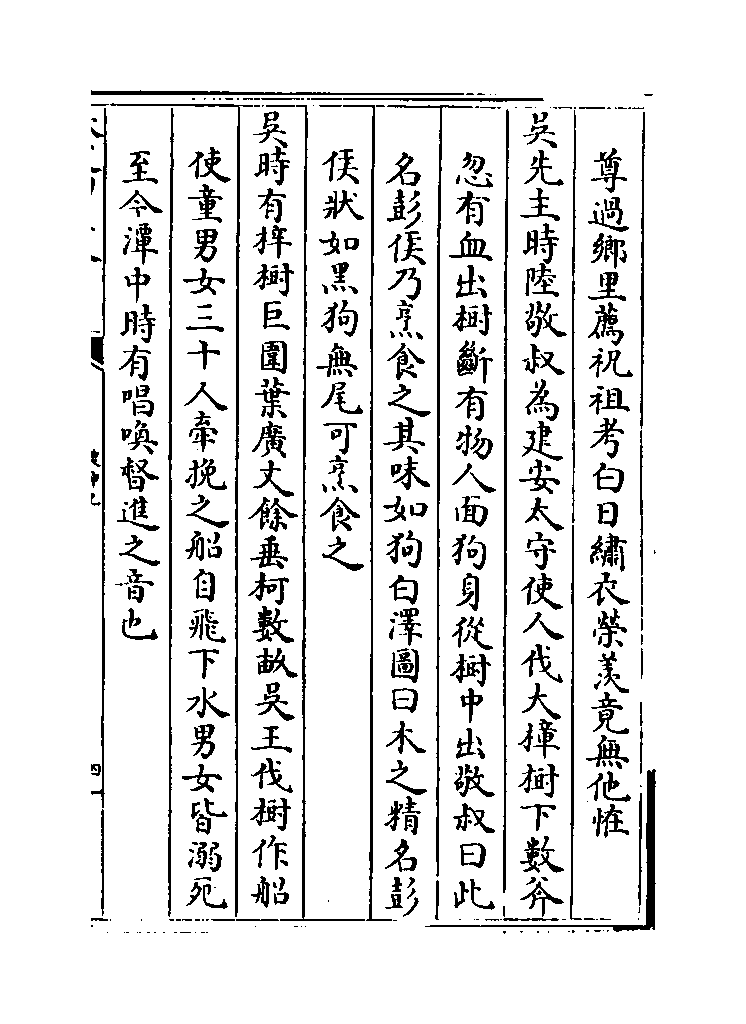 尊過鄉里薦祝祖考白日繡衣榮羡竟無他恠
吳先主時陸敬叔為建安太守使人伐大樟樹下數斧
忽有血出樹斷有物人面狗身從樹中出敬叔曰此
名彭侯乃烹食之其味如狗白澤圖曰木之精名彭
侯狀如黑狗無尾可烹食之
吳時有梓樹巨圍葉廣丈餘垂柯數畝吳王伐樹作船
使童男女三十人牽挽之船自飛下水男女皆溺死
至今潭中時有唱喚督進之音也